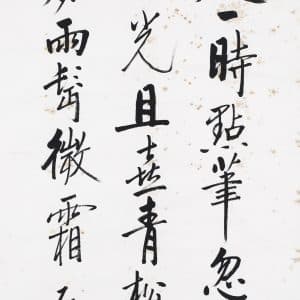 一時點筆忽
光且喜青松
雨鬢微霜